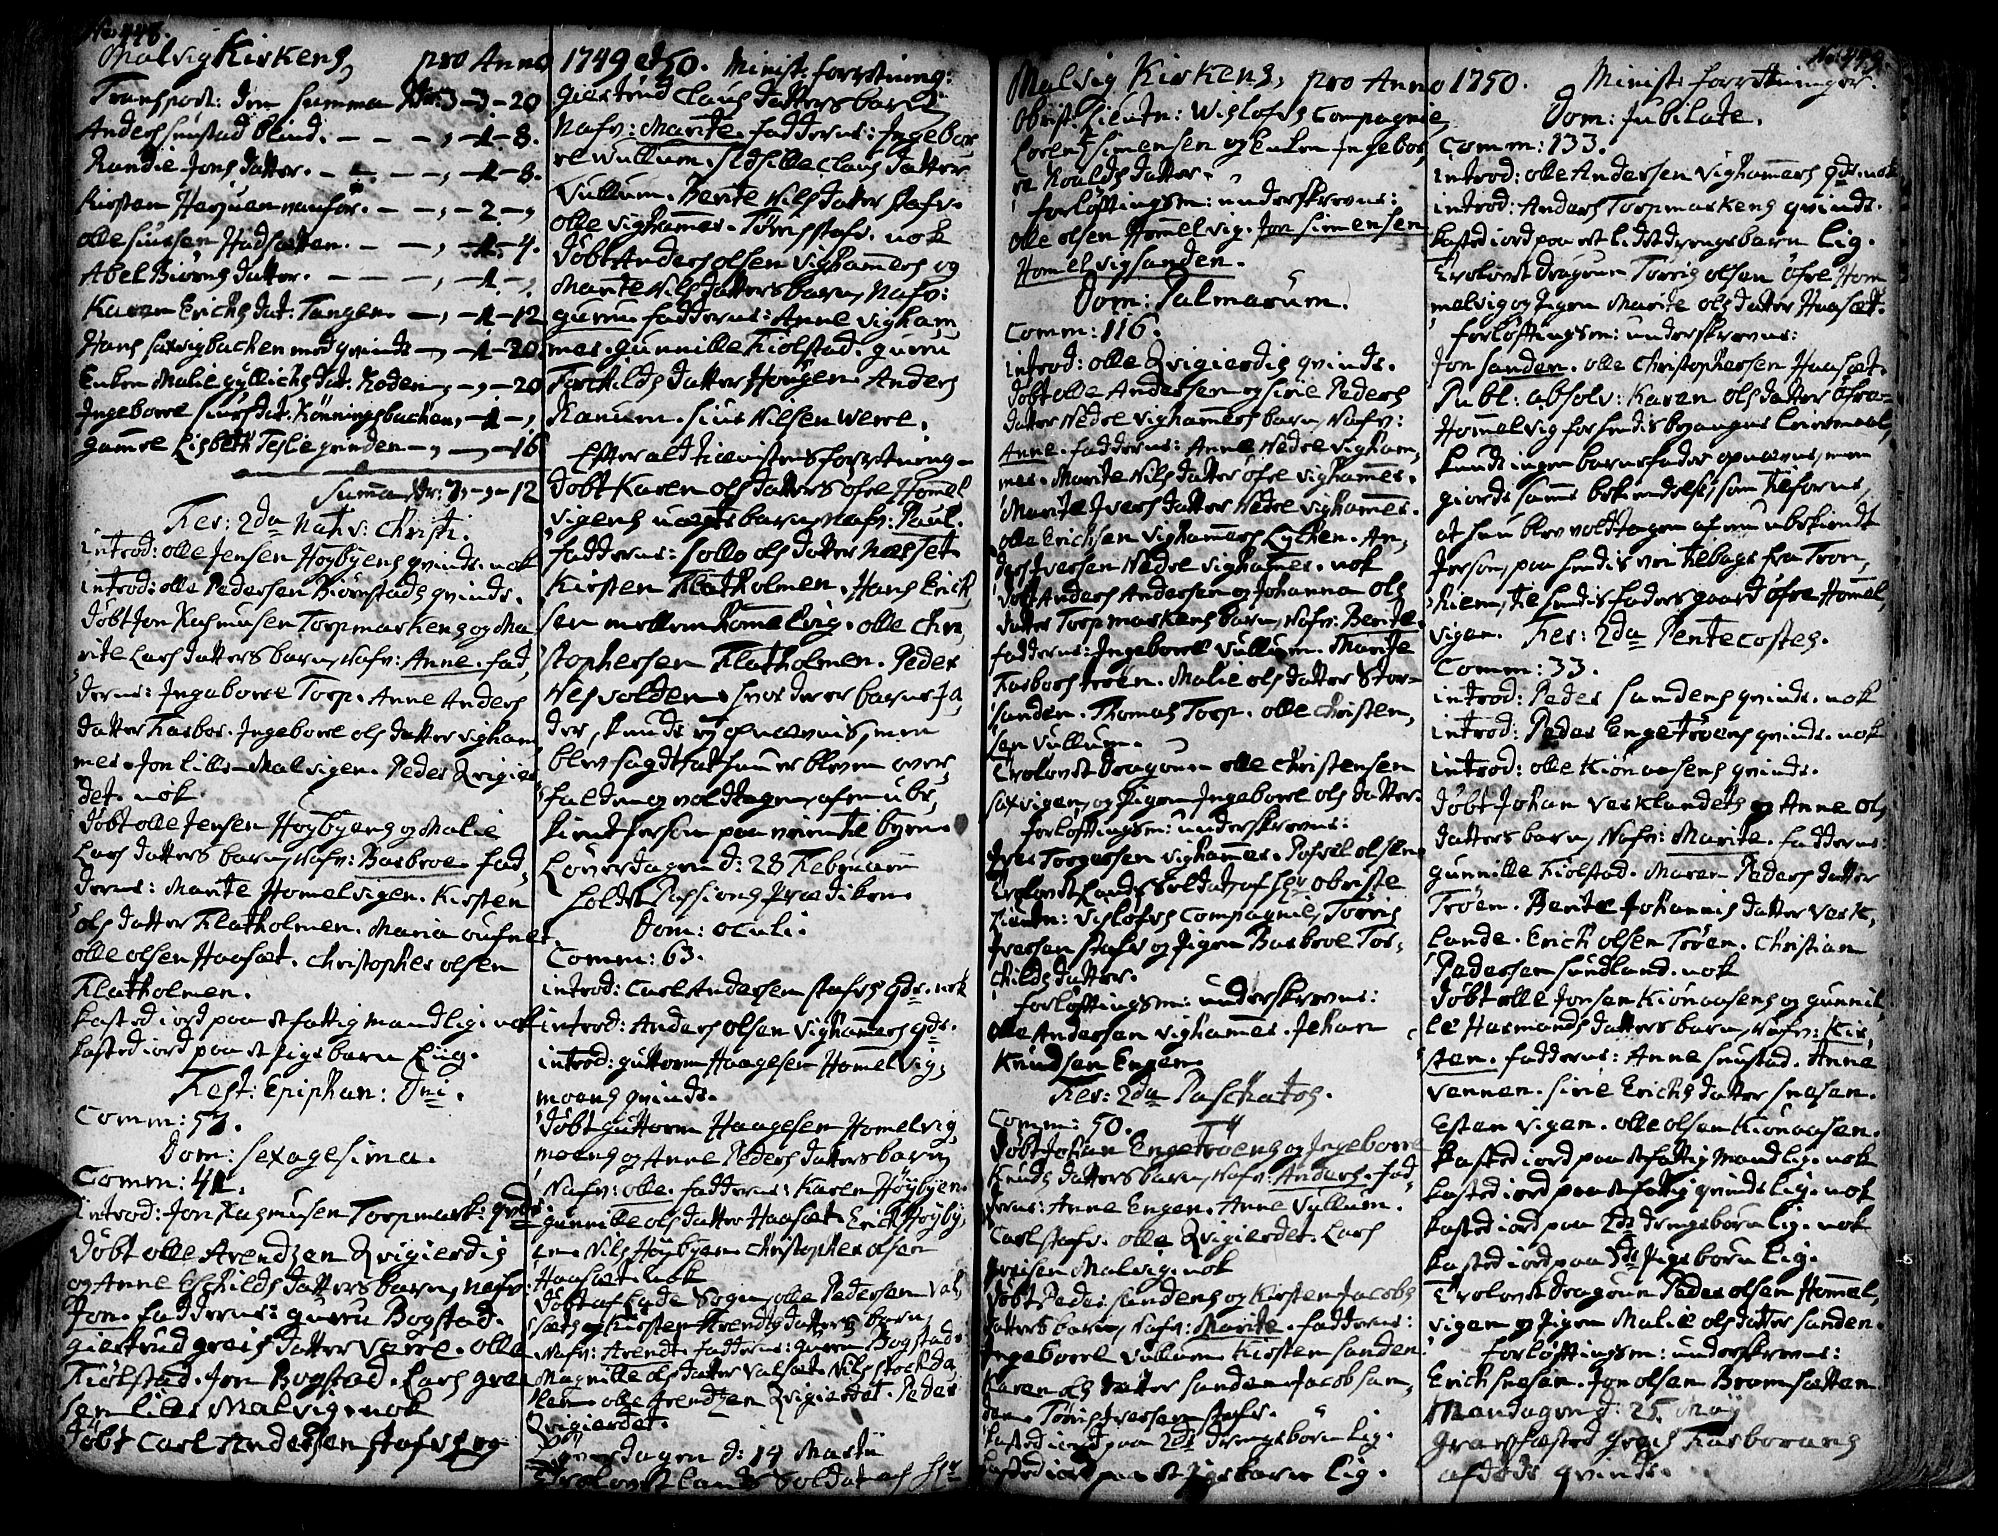 No. 448.
Malvig Kirkens, pro Anno 1749 et 50. Minist: forretning:
Transport: den Summa Rdr: 3-3-20
Anders Snustad blind. - - - , -1- 8.
Randie Jons datter. - - - , -1- 8.
Kirsten - - , - 2 - ,
olle Siursen Hadsætten. - - , -1- 4.
Abel Biörns datter. - - - , -1- ,
Karen Erichs dat: Tangen. - , -1- 12
Hans Saxvigbachen med qvinde - , -1- 20.
Enken Malie Gyllichs dat: Roden , - , - 20
Ingeborre Siurs dat: Rönningsbachen, -1- ,
gamle Lisbeth Teslie qvinden - , - , - 16
Summa Rdr: 7 - , - 12
Fer: 2da Nativ: Christi.
introd: olle Jensen Höybyens qvinde. nok
introd: olle Pedersen Biörnstads qvinde.
döbt Jon Rasmusen Torpmarkens og Ma-
rite Lars datters barn, Nafv: Anne. fad-
derne: Ingeborre Torp. Anne Anders
datter Karbor. Ingeborre ols datter vigham-
mer. Jon lille-Malvigen. Peder Qvigier
det. nok
döbt olle Jensen Höybyens og Malie
Lars datters barn, Nafv: Barbroe. fad-
derne: Marite Homelvigen. Kirsten
ols datter Flatholmen. Maria
olle olsen Haasæt. Christopher olsen
Flatholmen.
kasted iord paa et fattig mands lig. nok
kasted iord paa et Pige barns Liig.
Fest: Epiphan: Dni.
Comm: 57.
Dom: Sexagesima.
Comm: 41.
introd: Jon Rasmusen Torpmark: qvde
döbt olle Arendtzen Qvigierdis
og Anne Eschilds datters barn, Nafv:
Jon. fadderne: guru Bogstad.
giertrud greis datter Være. olle
Kiölstad. Jon Bogstad. Lars grei
sen lille Malvig. nok
döbt Carl Andersen Stafs og
giertrud Claus datters barn
Nafv: Marite. fadderne: Ingebor-
re wullum. Sidsille Claus datter
Vullum. Berite Nils datter Stafv.
olle vighammer. Tönis Stafv. nok
döbt Anders olsen vighammers og
Marite Nils datters barn, Nafv:
guru. fadderne: Anne vigham-
mer. gunnille Kiölstad. guru
Torchilds datter Hougen. Anders
Ranum. Siur Nilsen were.
Efter al tieenistens forretning-
döbt Karen ols datters öfre Homel
vigens uægte barn, Nafv: Paul.
fadderne: Sollo ols datter Næsset
Kirsten Flatholmen. Hans Erick-
sen mellem Homelvig. olle Chri-
stophersen Flatholmen. Peder
Nesvolden. hvor der er barne fa-
der, kunde ey opnævnis, men
blev sagdt at hun er bleven over-
falden og voldtagen, af en ube-
kiendt Person paa veien til byen.
Löverdagen d: 28 Februarii
holdt Passions Prædiken.
Dom: oculi.
Comm: 63.
introd: Carl Andersen Stafs qde. nok
introd: Anders olsen vighammers qde.
introd: guttorm Haagesen Homelvig-
moens qvinde.
döbt guttorm Haagesen Homelvig
moens og Anne Peders datters barn
Nafv: olle. fadderne: Karen Höybyen.
gunnille ols datter Haasæt. Erich Höyby-
en. Nils Höybyen. Christopher olsen
Haasæt. nok
döbt af Lade Sogn, olle Pedersen Val-
sæts og Kirsten Arendts datters barn,
Nafv: Arendt. fadderne: guru Bogstad.
Magnille ols datter Valsæt. Nils Stockda-
len. olle Arendtzen Qvigierdet. Peder
Qvigierdet.
Löverdagen d: 14 Martii
Trolovet Land Soldat af Hr
No. 449.
Malvig Kirkens, pro Anno 1750. Minist: forretninger.
Obrist: Lieutn: Wislofvs Compagnie,
Lorentz Simensen og Enken Ingebor-
re Roalds datter.
forlöftingsm: underskrevne:
olle olsen Hommelvig. Jon Simensen
Homelvigsanden.
Dom: Palmarum.
Comm: 116.
introd: olle Qvigierdis qvinde.
döbt olle Andersen og Sirie Peders
datter Nedre vighammers barn, Nafv:
Anne. fadderne: Anne Nedre vigham-
mer. Marite Nils datter öfre vighammer.
Marite Ivers datter Nedre vighammer.
olle Erichsen vighammers Lychen. An-
ders Iversen Nedre vighamer. nok
döbt Anders Andersen og Johanna ols
datter Torpmarkens barn, Nafv: Berite.
fadderne: Ingeborre Vullum. Marite
Karbors tröen. Malie ols datter Stor-
sanden. Thomas Torp. olle Christen-
sen Vullum.
Trolovet Dragoun olle Christensen
Saxvigen, og Pigen Ingeborre ols datter.
forlöftingsm: underskrevne:
Iver Torgersen vighammer. Pofvel olsen
Trolovet Lands Soldat, af Hr Obriste
Lieutn: Vislofvs Compagnie, Törris
Iversen Stafv og Pigen Barbroe Tor-
childs datter.
forlöftingsm: underskrevne:
olle Andersen vighammer. Johan
Knudsen Engen.
Fer: 2da Paschatos.
Comm: 50.
döbt Johan Engetröens og Ingeborre
Knuds datters barn, Nafv: Anders. fad-
derne: Anne Engen. Anne Vullum.
Carl Stafv. olle Qvigierdet. Lars
greisen Malvig. nok
döbt Peder Sandens og Kirsten Jacobs
datters barn, Nafv: Marite. fadderne:
Ingeborre Vullum. Kirsten Sanden
Karen ols datter Sanden. Jacob San-
den. Tönis Iversen Stafv.
kasted iord paa 2de drengebörns Lig.
kasted iord paa et Pigebarns Lig.
Dom: Jubilate.
Comm: 133.
introd: olle Andersen vighammers qde. nok
introd: Anders Torpmarkens qvinde.
kasted iord paa et lidet drengebarns Lig.
Trolovet dragoun Törris olsen öfre Hom
melvig og Pigen Marite ols datter Haasæt.
forlöftingsm: underskrevne:
Jon Sanden. olle Christophersen Haasæt.
Publ: absolv: Karen ols datter öfre-
Hommelvig for hendis begangne Leiermaal,
kunde ingen barnefader opnævne, men
giorde samme bekiendelse, som tilforne,
at hun blev voldtagen af en ubekiendt
Person, paa hendis vei tilbage fra Tron-
hiem, til hendis faders gaard öfre Hommel-
vigen. Fer: 2da Pentecostes.
Comm: 33.
introd: Peder Sandens qvinde. nok
introd: Peder Engetröens qvinde. nok
introd: olle Kiönaasens qvinde.
döbt Johan Værklandets og Anne ols
datters barn, Nafv: Marite. fadderne:
gunnille Kiölstad. Maren Peders datter
Tröen. Berite Johannis datter Værk-
lande. Erich olsen Tröen. Christian
Pedersen Sundland. nok
döbt olle Jonsen Kiönaasens og gunnil-
le Hermands datters barn, Nafv: Kir-
sten. fadderne: Anne Snustad. Anne
Vennen. Sirie Erichs datter Snesen.
Esten Vigen. olle olsen Kiönaasen.
kasted iord paa et fattig mands lig. nok
kasted iord paa et fattig qvinde lig. nok
kasted iord paa 2de drengebörns lig. nok
kasted iord paa 3de Pigebörns lig.
Trolovet dragoun Peder olsen Hommel-
vigen og Pigen Malie ols datter Sanden.
forlöftingsm: underskrevne:
Erich Snesen. Jon olsen Bromsætten.
Mandagen d: 25 Maij
gravfæsted greis Karborans
afdöde qvinde.